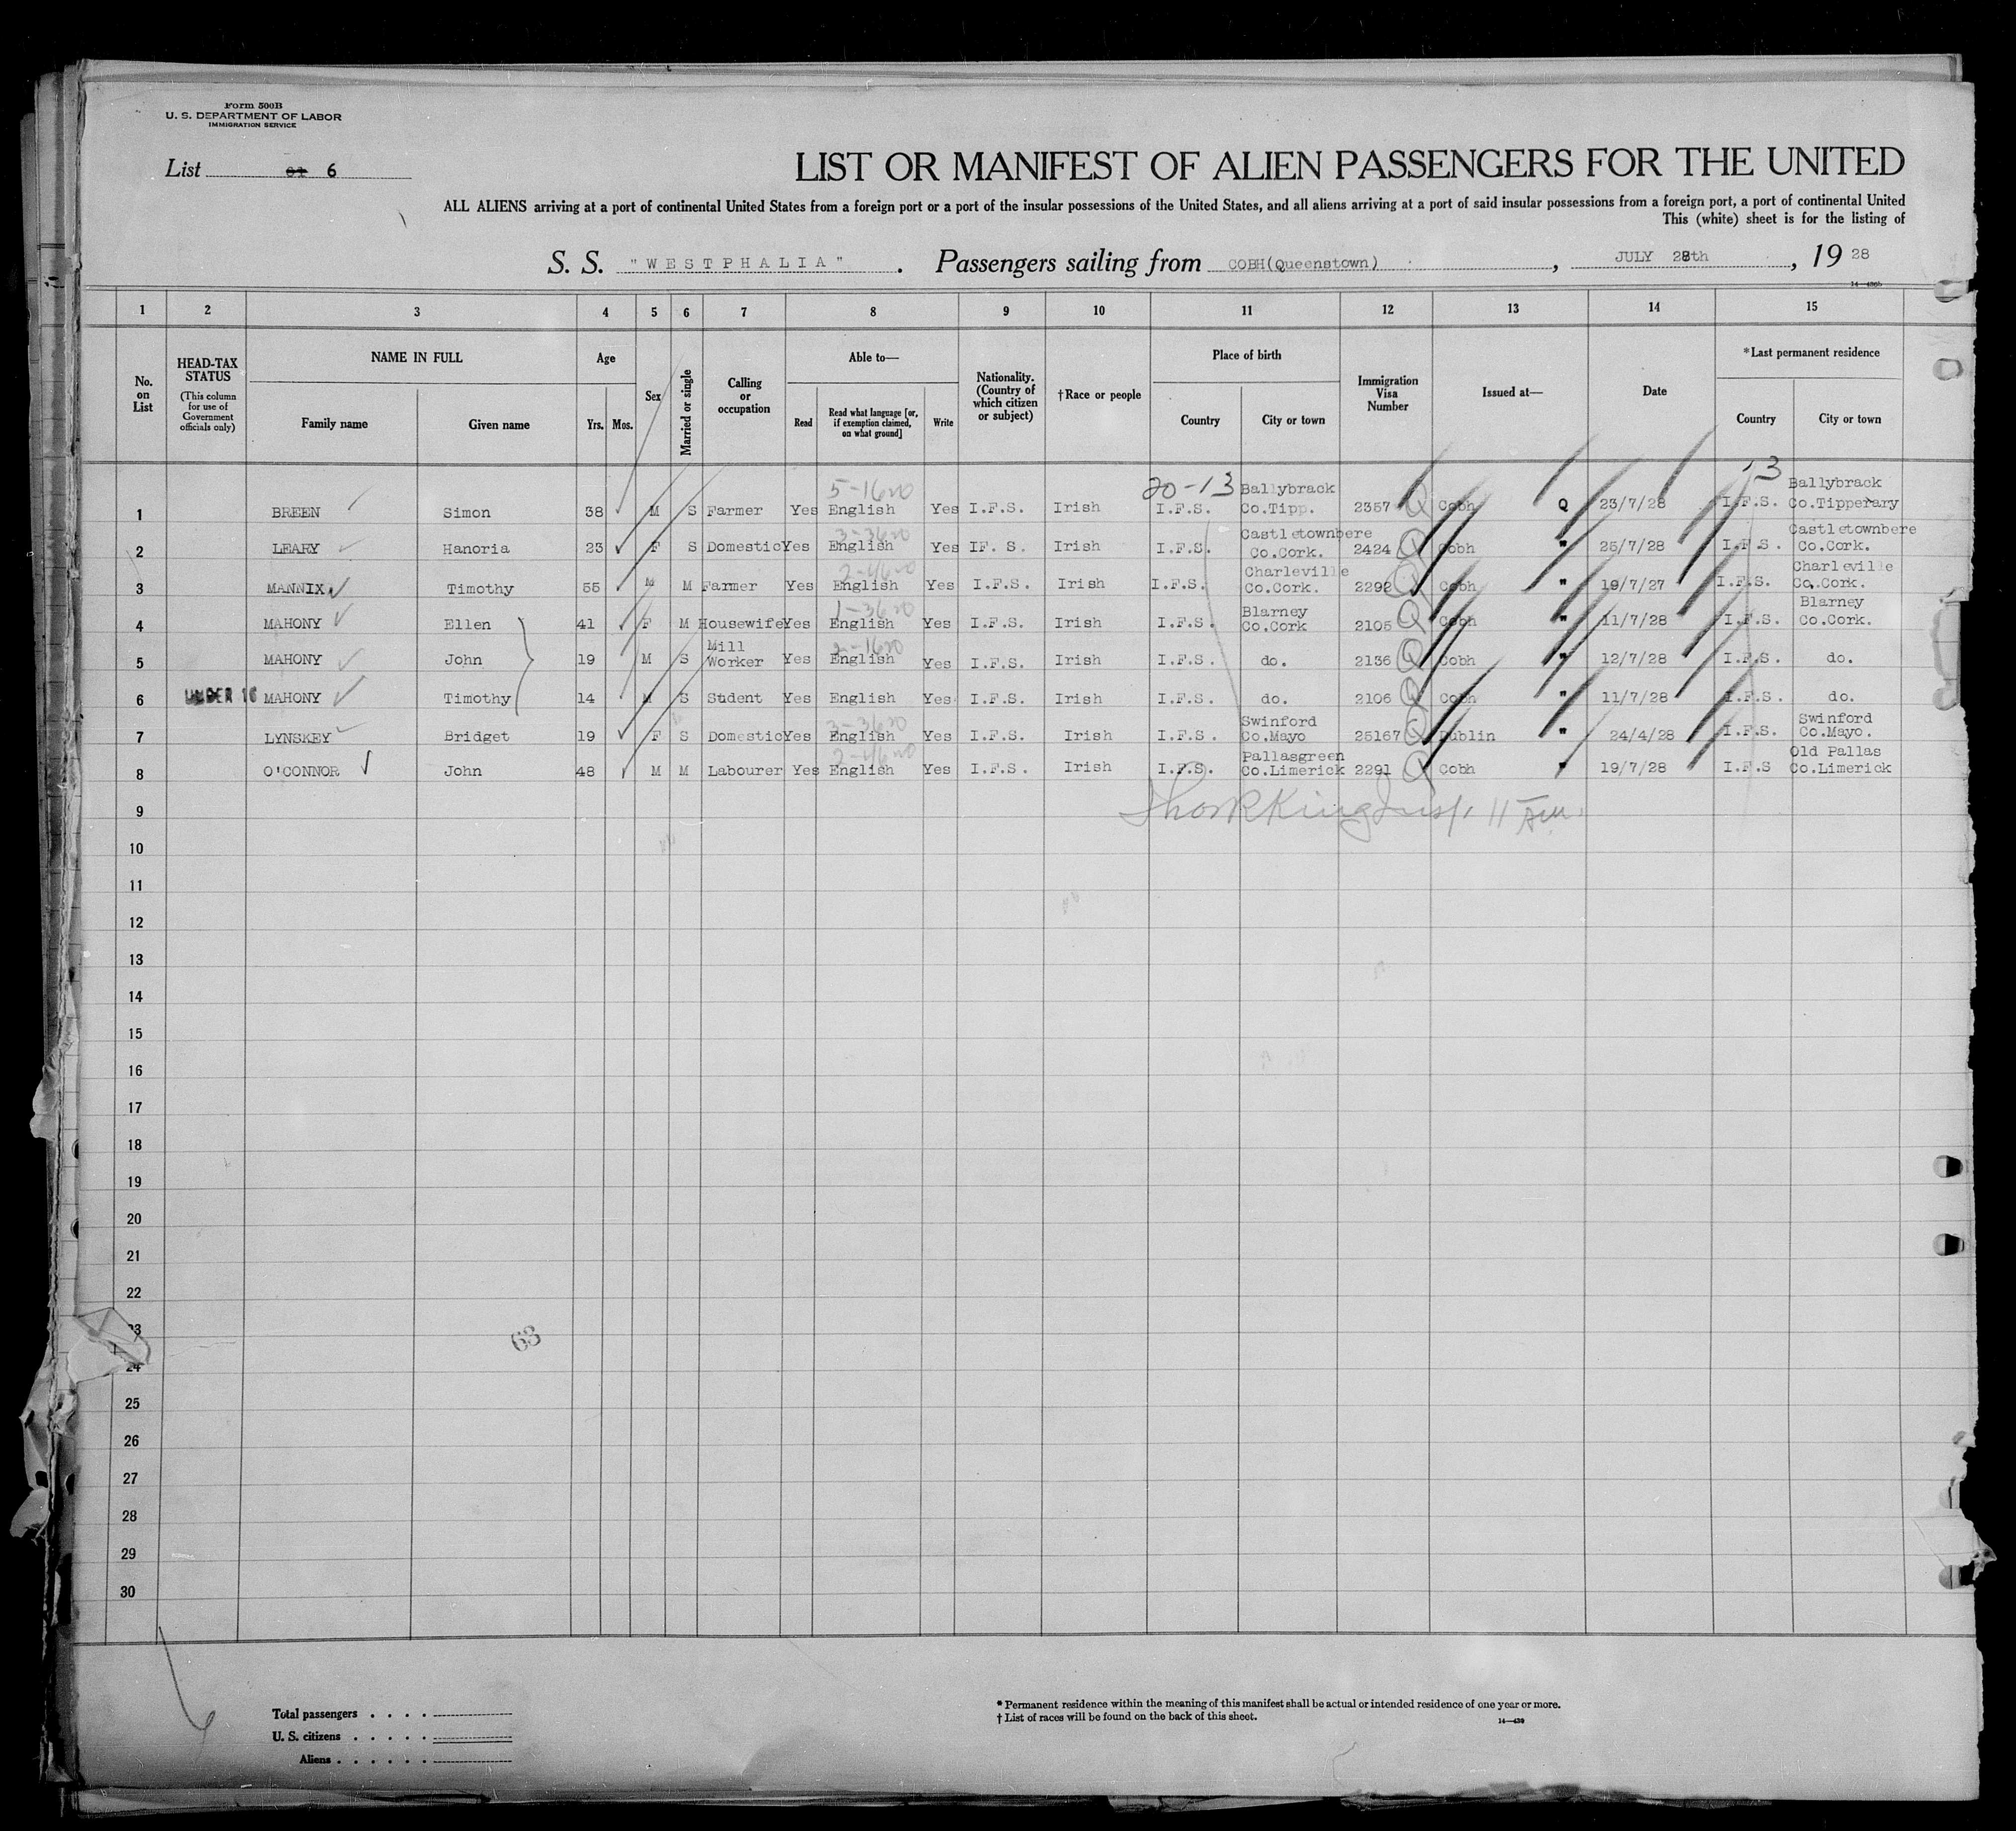 Form 500B
U. S. DEPARTMENT OF LABOR
IMMIGRATION SERVICE
List 6
LIST OR MANIFEST OF ALIEN PASSENGERS FOR THE UNITED
ALL ALIENS arriving at a port of continental United States from a foreign port or a port of the insular possessions of the United States, and all aliens arriving at a port of said insular possessions from a foreign port, a port of continental United
This (white) sheet is for the listing of
S. S. "WESTPHALIA". Passengers sailing from COBH(Queenstown), JULY 28th, 19 28
1 2 3 4 5 6 7 8 9 10 11 12 13 14 15
No. on List
HEAD-TAX STATUS
(This column for use of Government officials only)
NAME IN FULL
Family name Given name
Age
Yrs. Mos.
Sex
Married or single
Calling or occupation
Able to—
Read
Read what language [or, if exemption claimed, on what ground]
Write
Nationality. (Country of which citizen or subject)
†Race or people
Place of birth
Country City or town
Immigration Visa Number
Issued at—
Date
*Last permanent residence
Country City or town
5-1620 20-13 Ballybrack 13 Ballybrack
1 BREEN Simon 38 M S Farmer Yes English Yes I.F.S. Irish I.F.S. Co.Tipp. 2357 Q Cobh Q 23/7/28 I.F.S. Co.Tipperary
3-3620 Castletownbere Castletownbere
2 LEARY Hanoria 23 F S Domestic Yes English Yes IF. S. Irish I.F.S. Co.Cork. 2424 Q Cobh " 25/7/28 I.F.S. Co.Cork.
2-4620 Charleville Charleville
3 MANNIX Timothy 55 M M Farmer Yes English Yes I.F.S. Irish I.F.S. Co.Cork. 2292 Q Cobh " 19/7/27 I.F.S. Co.Cork.
1-3620 Blarney Blarney
4 MAHONY Ellen 41 F M Housewife Yes English Yes I.F.S. Irish I.F.S. Co.Cork 2105 Q Cobh " 11/7/28 I.F.S. Co.Cork.
Mill 2-1620
5 MAHONY John 19 M S Worker Yes English Yes I.F.S. Irish I.F.S. do. 2136 Q Cobh " 12/7/28 I.F.S. do.
6 UNDER 16 MAHONY Timothy 14 M S Student Yes English Yes I.F.S. Irish I.F.S. do. 2106 Q Cobh " 11/7/28 I.F.S. do.
3-3620 Swinford Swinford
7 LYNSKEY Bridget 19 F S Domestic Yes English Yes I.F.S. Irish I.F.S. Co.Mayo 25167 Q Dublin " 24/4/28 I.F.S. Co.Mayo.
2-4620 Pallasgreen Old Pallas
8 O'CONNOR John 48 M M Labourer Yes English Yes I.F.S. Irish I.F.S. Co.Limerick 2291 Q Cobh " 19/7/28 I.F.S Co.Limerick
9 King Insp. 11 AM.
10
11
12
13
14
15
16
17
18
19
20
21
22
23
63
24
25
26
27
28
29
30
Total passengers . . . .
U. S. citizens . . . . .
Aliens . . . . . .
* Permanent residence within the meaning of this manifest shall be actual or intended residence of one year or more.
† List of races will be found on the back of this sheet.